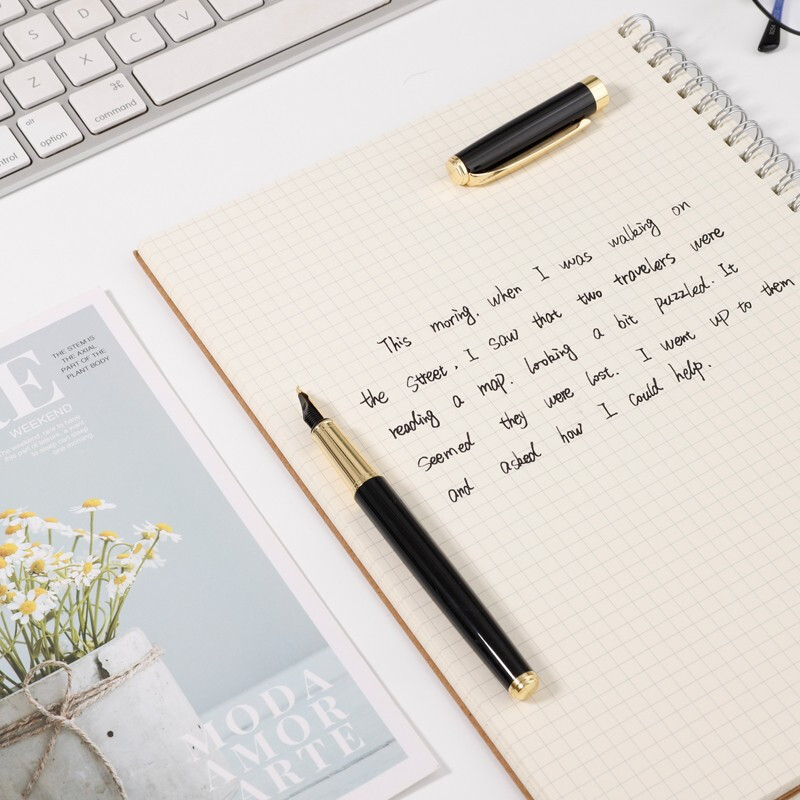 S
D
F
Z
X
C
V
alt
option
⌘
command
control
E
THE STEM IS
THE AXIAL
PART OF THE
PLANT BODY
WEEKEND
This moring. when I was walking on
the Street, I saw that two travelers were
reading a map. looking a bit puzzled. It
Seemed they were lost. I went up to them
and asked how I could help.
MODA
AMOR
ARTE